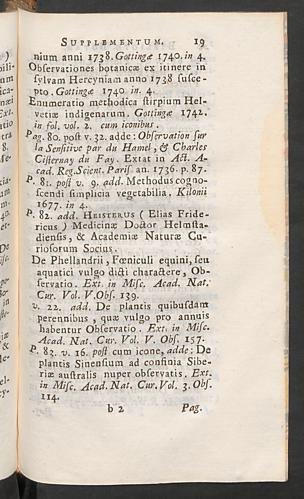 SUPPLEMENTUM. 19
nium anni 1738. Gottingæ 1740. in 4.
Observationes botanicæ ex itinere in
sylvam Hercyniam anno 1738 susce-
pto. Gottingæ 1740 in. 4.
Enumeratio methodica stirpium Hel-
vetiæ indigenarum. Gottingæ 1742.
in fol. vol. 2. cum iconibus.
Pag. 80. post v. 32. adde: Observation sur
la Sensitive par du Hamel, & Charles
Cisternay du Fay. Extat in Act. A-
cad. Reg. Scient. Paris. an. 1736. p. 87.
P. 81. post v. 9. add. Methodus cogno-
scendi simplicia vegetabilia. Kilonii
1677. in 4.
P. 82. add. HEISTERUS (Elias Fride-
ricus) Medicinæ Doctor Helmsta-
diensis, & Academiæ Naturæ Cu-
riosorum Socius.
De Phellandrii, Fœniculi equini, seu
aquatici vulgo dicti charactere, Ob-
servatio. Ext. in Misc. Acad. Nat.
Cur. Vol. V. Obs. 139.
v. 22. add. De plantis quibusdam
perennibus, quæ vulgo pro annuis
habentur Observatio. Ext. in Misc.
Acad. Nat. Cur. Vol. V. Obs. 157.
P. 83. v. 16. post cum icone, adde: De
plantis Sinensium ad confinia Sibe-
riæ australis nuper observatis. Ext.
in Misc. Acad. Nat. Cur. Vol. 3. Obs.
114.
b 2 Pag.